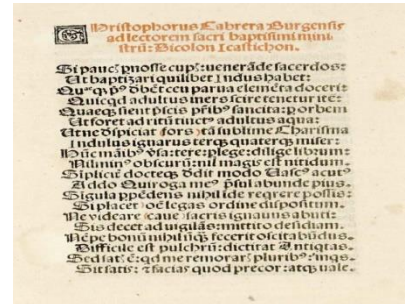 Christophorus Cabrera Burgensis
ad lectorem sacri baptismi mini
strū: Dicolon Icastichon.
Si paucꝭ pnosse cupꝭ: venerāde sacerdos:
Ut baptizari quilibet Indus habet:
Quęqꝫ pꝰ dꝫbēt ceu parua elemēta doceri:
Quicqd adultus iners scire tenetur itē:
Quaeqꝫ siēt pſcis prībꝰ sancita: p orbem
Ut foret ad ritū tinctꝰ adultus aqua:
Ut ne dſpiciat fors tā sublime Charisma
Indulus ignarus terqꝫ quaterqꝫ miser:
Hūc manibꝰ vſa: tere: plege: dilige librum:
Nil minꝰ obscurū: nil magis est nitidum.
Simplicit docteqꝫ dedit modo Vascꝰ acutꝰ
Addo Quiroga meꝰ pſul abunde pius.
Sīgula ppēdens nihil īde reqrere possis:
Si placet oē legas ordine dispositum.
Ne videare caue sacris ignauus abuti:
Sis decet aduigilās: mittito desidiam.
Nēpe bonū nihil vnqꝫ fecerit oscitabūdus.
Difficile est pulchrū: dictitat Antiqtas.
Sed iam satꝰ
Sit satis: ꝛ facias quod precor: atqꝫ vale.